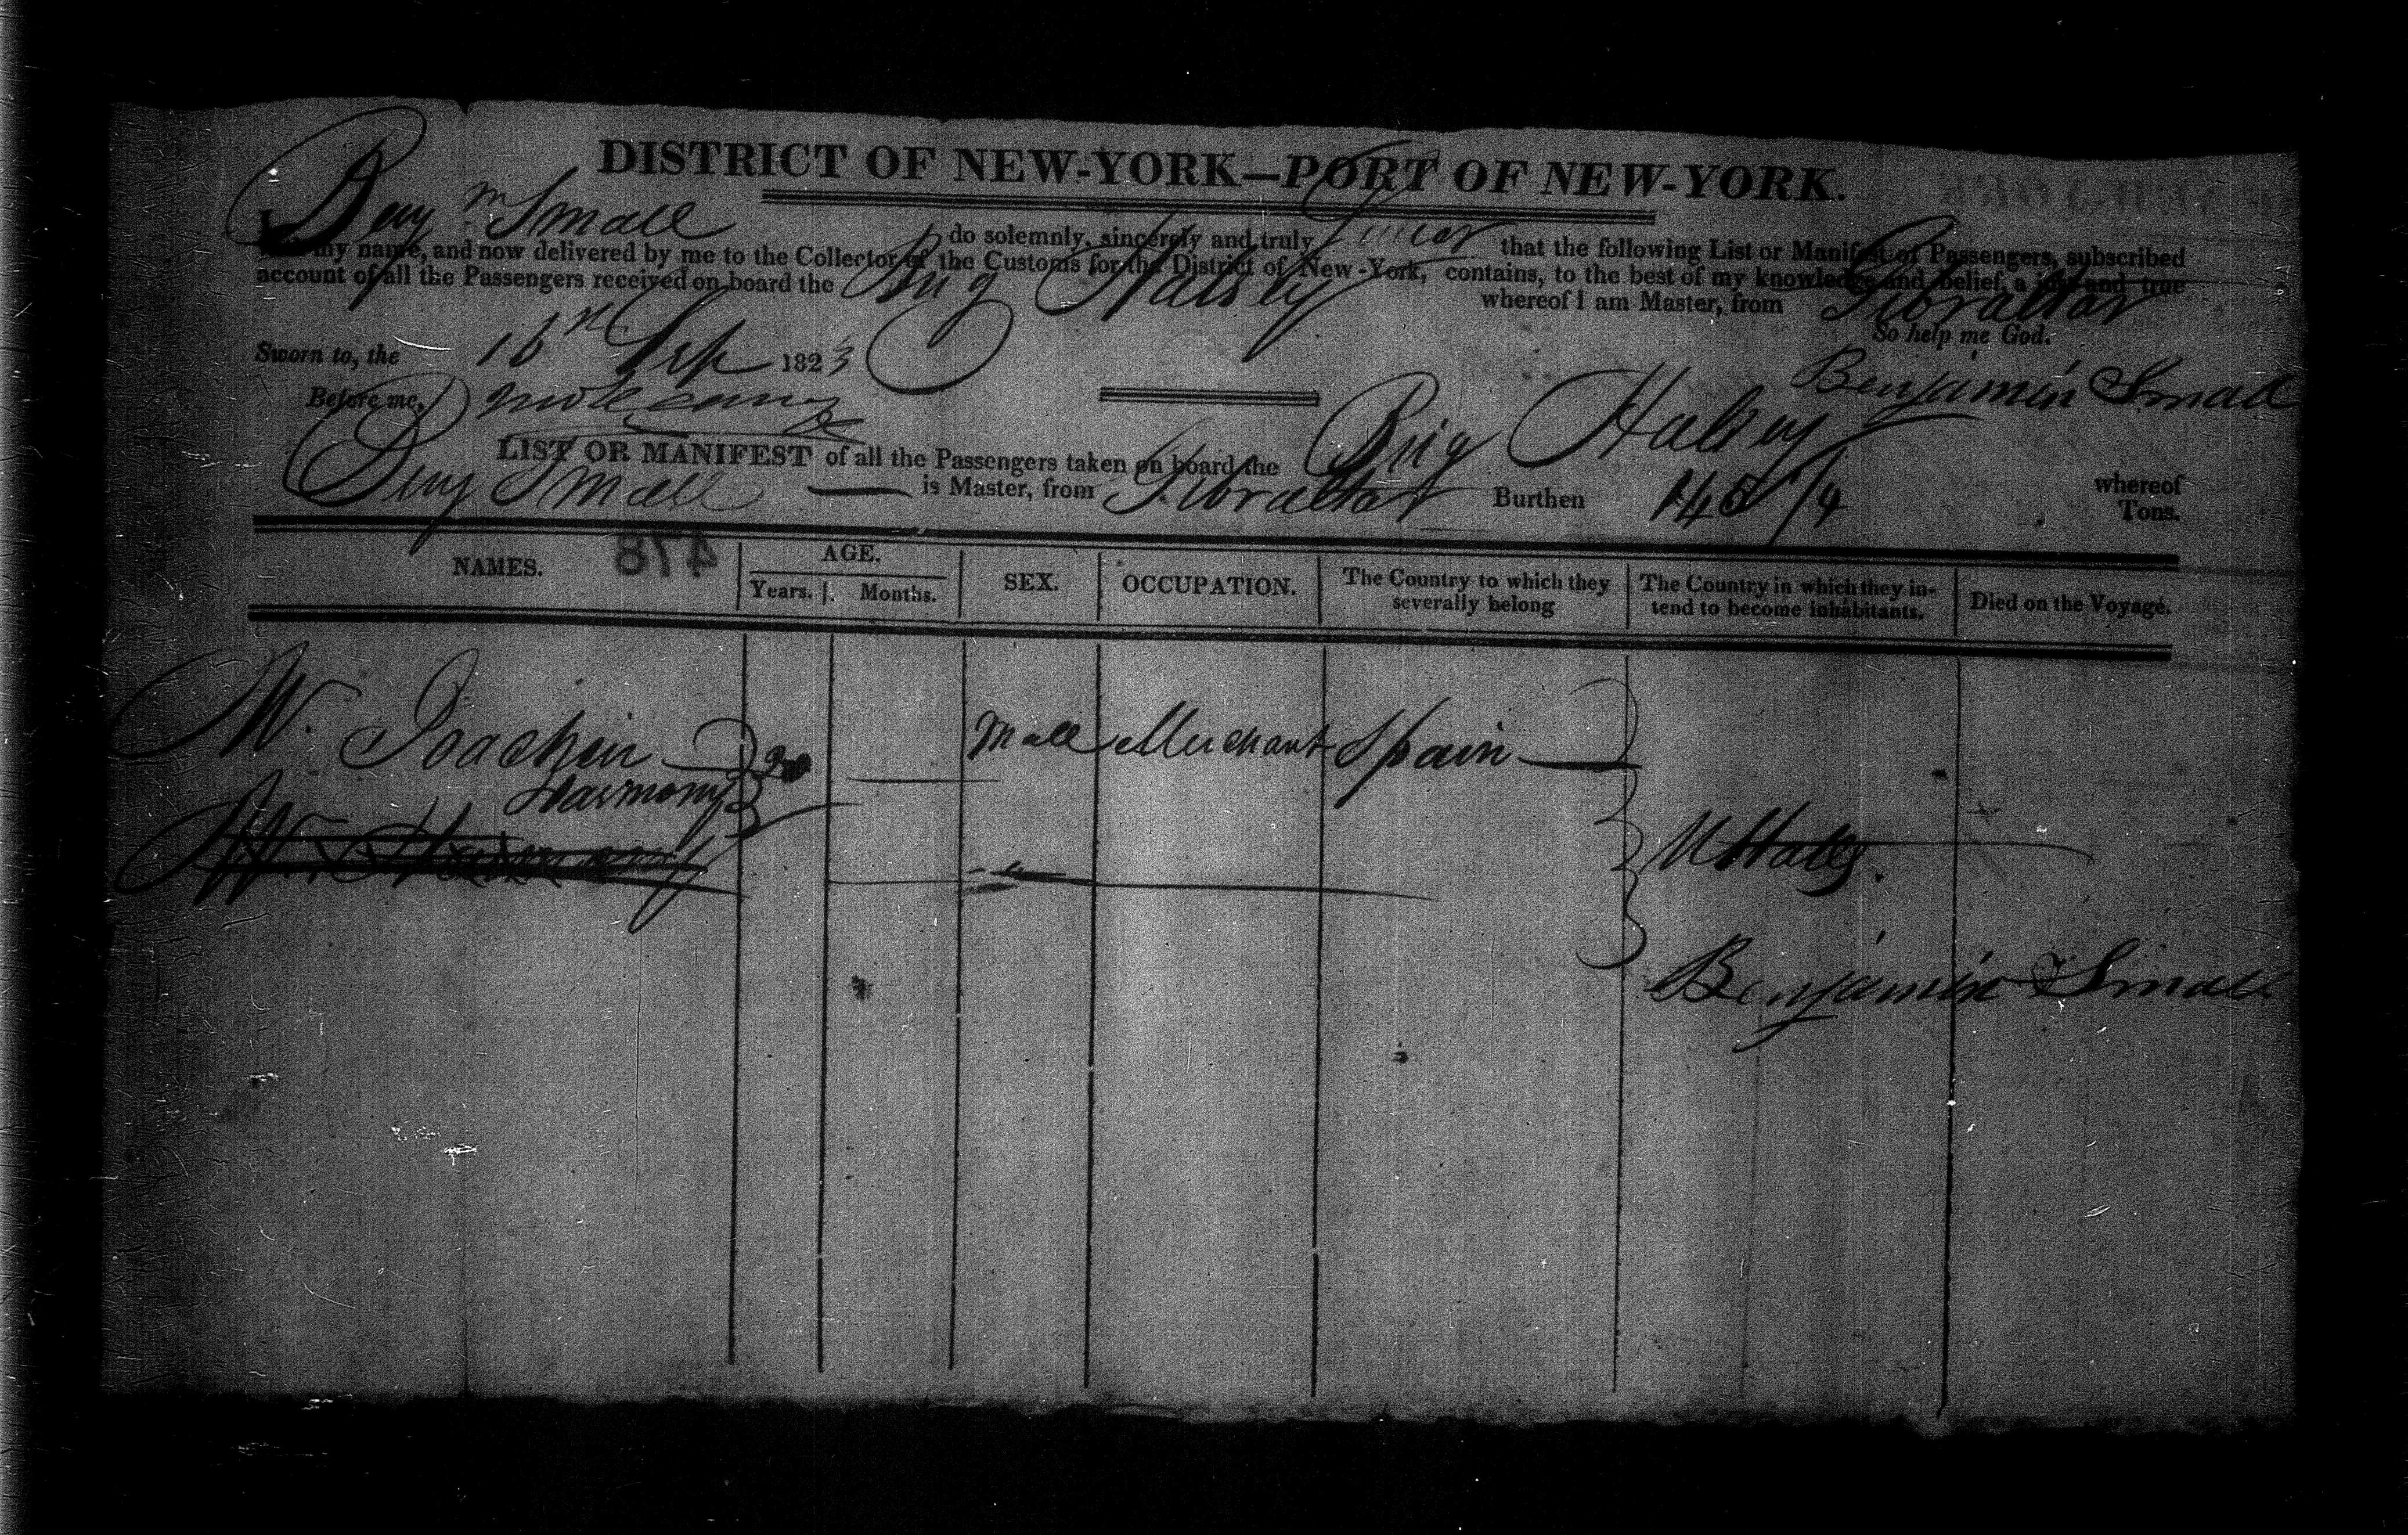 DISTRICT OF NEW-YORK—PORT OF NEW-YORK.
I, Benj.m Small do solemnly, sincerely and truly swear that the following List or Manifest of Passengers, subscribed
my name, and now delivered by me to the Collector of the Customs for the District of New-York, contains, to the best of my knowledge and belief, a just and true
account of all the Passengers received on board the Brig Halsey whereof I am Master, from Gibraltar
So help me God.
Sworn to, the 16th Sep 1823
Benjamin Small
Before me,
LIST OR MANIFEST of all the Passengers taken on board the Brig Halsey whereof
Benj Small — is Master, from Gibraltar Burthen 145 /4 Tons.
478
NAMES. AGE. SEX. OCCUPATION. The Country to which they severally belong The Country in which they intend to become inhabitants. Died on the Voyage.
Years. Months.
M. Joachin Harmony 20 Male Merchant Spain
U States.
Benjamin Small